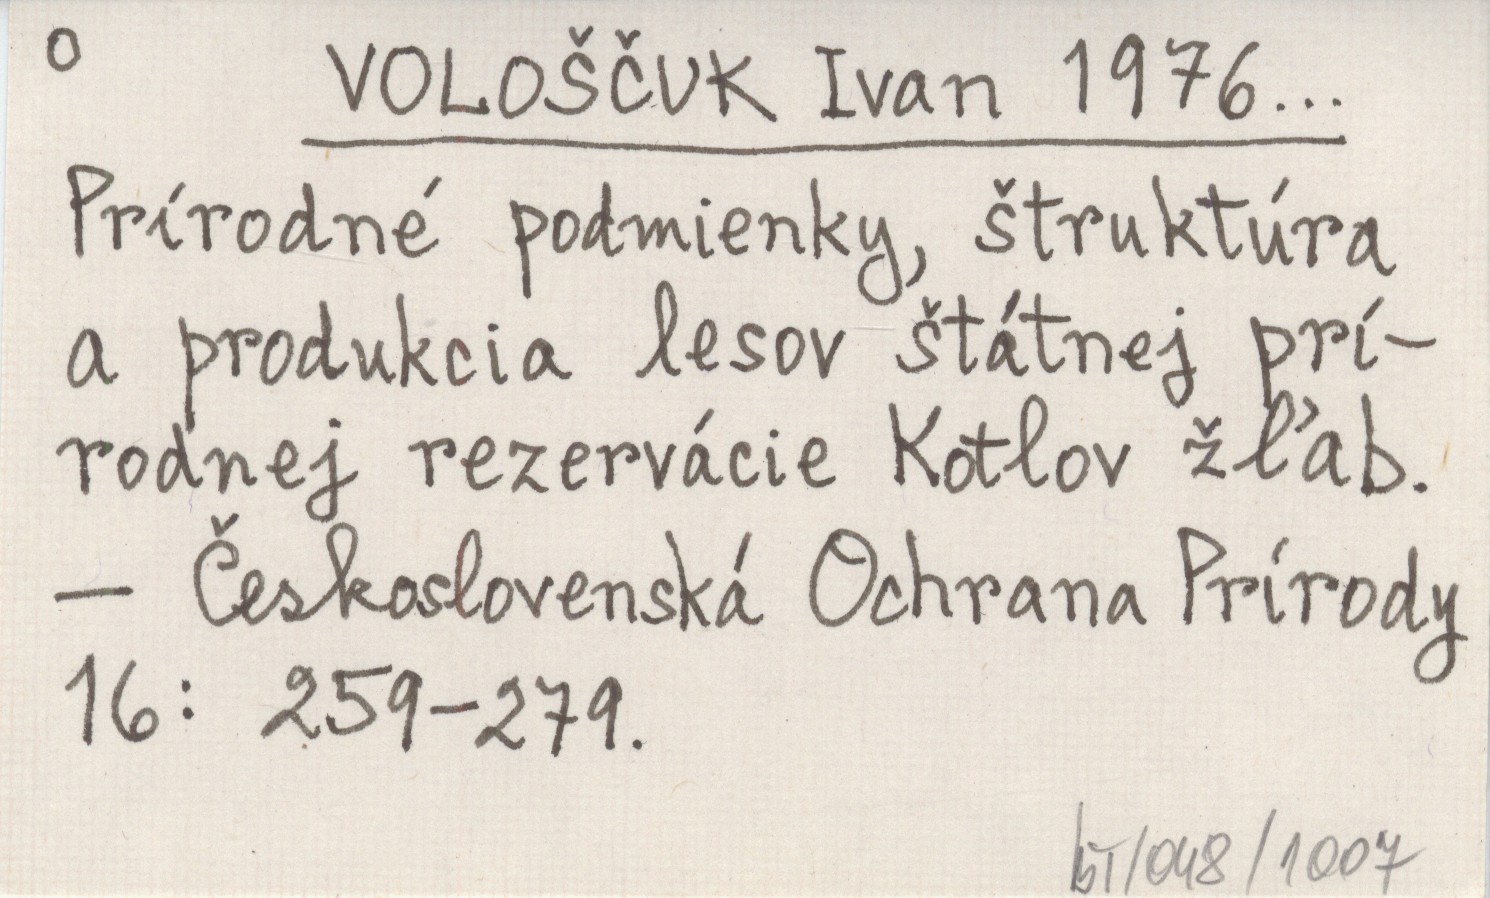 o VOLOŠČUK Ivan 1976...
Prírodné podmienky, štruktúra
a produkcia lesov štátnej prí-
rodnej rezervácie Kotlov žľab.
— Československá Ochrana Prírody
16: 259-279.
/048/1007